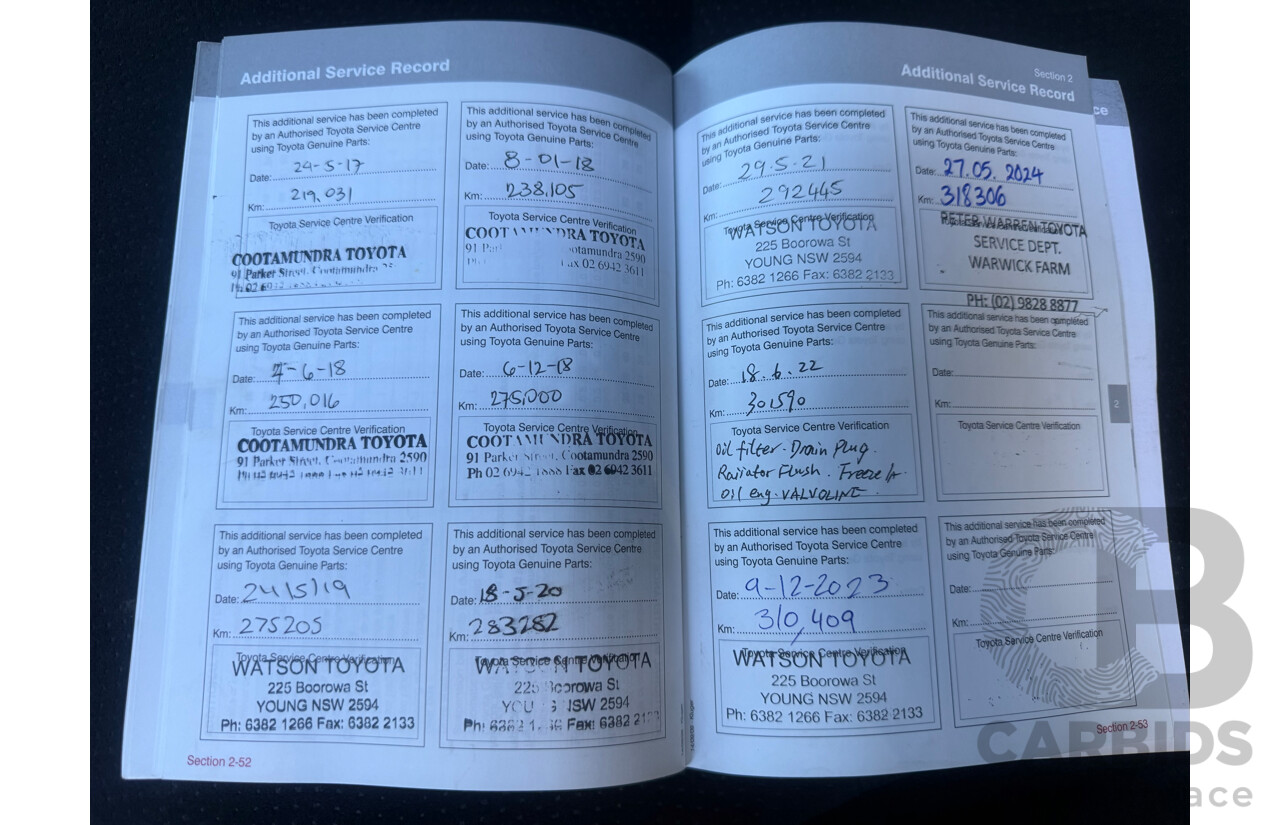 Additional Service Record
This additional service has been completed
by an Authorised Toyota Service Centre
using Toyota Genuine Parts:
Date: 24-5-17
Km: 219,031
Toyota Service Centre Verification
COOTAMUNDRA TOYOTA
91 Parker Street, Cootamundra
This additional service has been completed
by an Authorised Toyota Service Centre
using Toyota Genuine Parts:
Date: 8-01-18
Km: 238,105
Toyota Service Centre Verification
COOTAMUNDRA TOYOTA
91 Cootamundra 2590
Fax 02 6942 3611
This additional service has been completed
by an Authorised Toyota Service Centre
using Toyota Genuine Parts:
Date: 7-6-18
Km: 250,016
Toyota Service Centre Verification
COOTAMUNDRA TOYOTA
91 Parker Street, Cootamundra 2590
This additional service has been completed
by an Authorised Toyota Service Centre
using Toyota Genuine Parts:
Date: 6-12-18
Km: 275,000
Toyota Service Centre Verification
COOTAMUNDRA TOYOTA
91 Parker Street, Cootamundra 2590
Ph 02 6942 1888 Fax 02 6942 3611
This additional service has been completed
by an Authorised Toyota Service Centre
using Toyota Genuine Parts:
Date: 24/5/19
Km: 275205
Toyota Service Centre Verification
WATSON TOYOTA
225 Boorowa St
YOUNG NSW 2594
Ph: 6382 1266 Fax: 6382 2133
This additional service has been completed
by an Authorised Toyota Service Centre
using Toyota Genuine Parts:
Date: 18-5-20
Km: 283282
Toyota Service Centre Verification
WATSON TOYOTA
225 Boorowa St
YOUNG NSW 2594
Ph: 6382 1266 Fax: 6382 2133
Section 2-52
Section 2
Additional Service Record
This additional service has been completed
by an Authorised Toyota Service Centre
using Toyota Genuine Parts:
Date: 29.5.21
Km: 292445
Toyota Service Centre Verification
WATSON TOYOTA
225 Boorowa St
YOUNG NSW 2594
Ph: 6382 1266 Fax: 6382 2133
This additional service has been completed
by an Authorised Toyota Service Centre
using Toyota Genuine Parts:
Date: 27.05.2024
Km: 318306
PETER WARREN TOYOTA
SERVICE DEPT.
WARWICK FARM
PH: (02) 9828 8877
This additional service has been completed
by an Authorised Toyota Service Centre
using Toyota Genuine Parts:
Date: 18.6.22
Km: 301590
Toyota Service Centre Verification
Oil filter. Drain Plug.
Raiiator Flush.
Oil eng. VALVOLINE
This additional service has been completed
by an Authorised Toyota Service Centre
using Toyota Genuine Parts:
Date:
Km:
Toyota Service Centre Verification
2
This additional service has been completed
by an Authorised Toyota Service Centre
using Toyota Genuine Parts:
Date: 9-12-2023
Km: 310,409
Toyota Service Centre Verification
WATSON TOYOTA
225 Boorowa St
YOUNG NSW 2594
Ph: 6382 1266 Fax: 6382 2133
This additional service has been completed
by an Authorised Toyota Service Centre
using Toyota Genuine Parts:
Date:
Km:
Toyota Service Centre Verification
Section 2-53
ce
CB
CARBIDS
ace